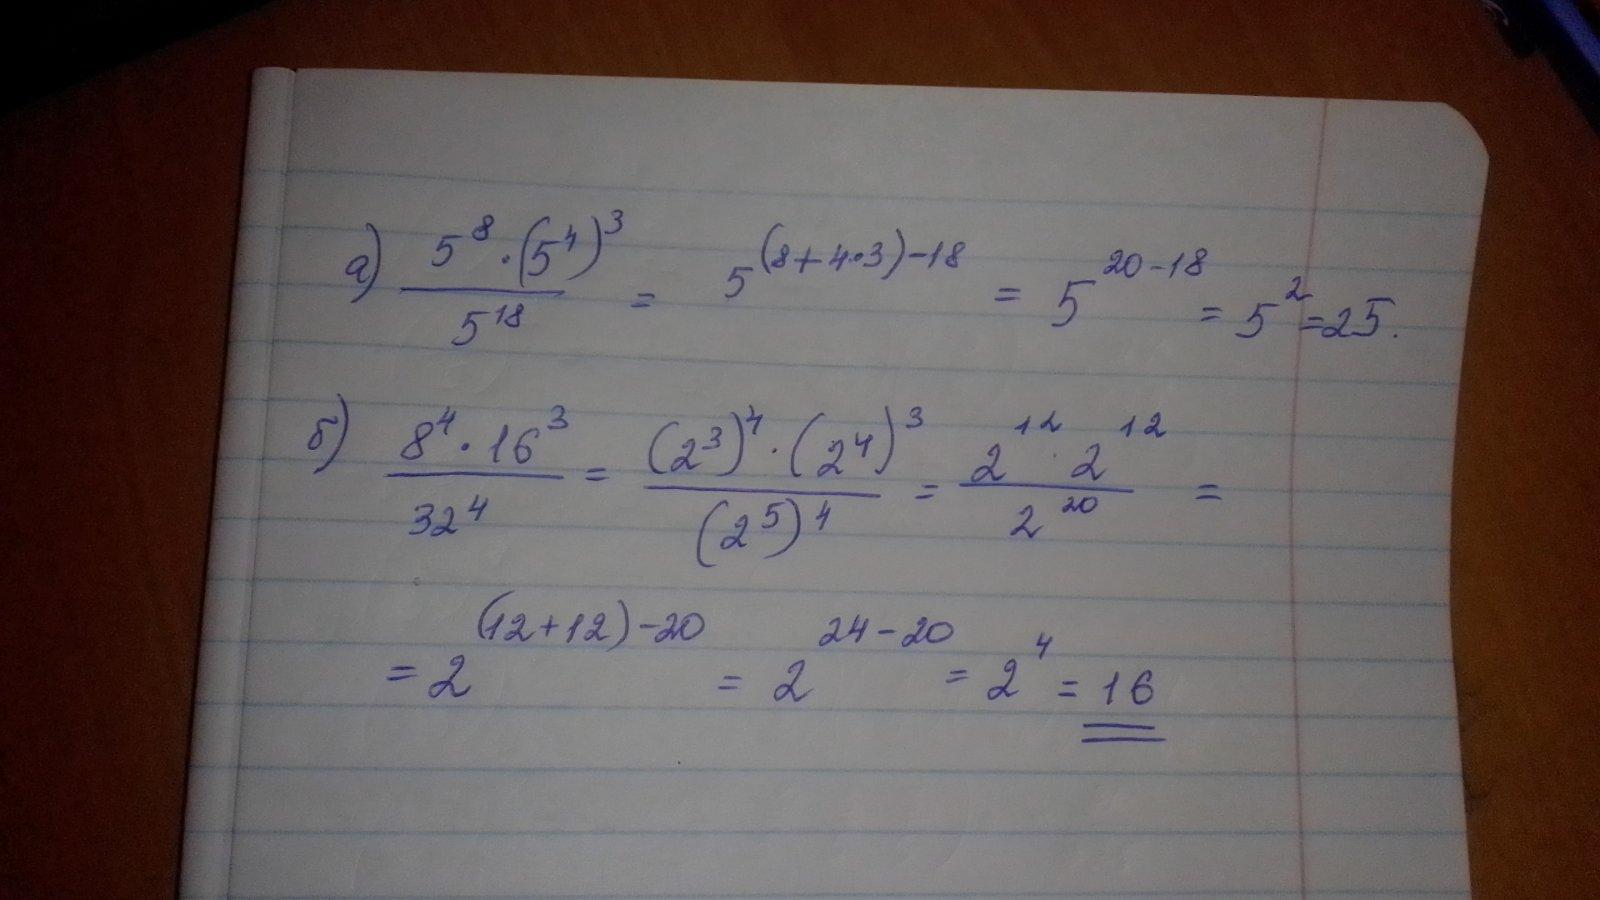 а) \frac{5^8 \cdot (5^4)^3}{5^{18}} = 5^{(8+4 \cdot 3)-18} = 5^{20-18} = 5^2 = 25.
б) \frac{8^4 \cdot 16^3}{32^4} = \frac{(2^3)^4 \cdot (2^4)^3}{(2^5)^4} = \frac{2^{12} \cdot 2^{12}}{2^{20}} =
= 2^{(12+12)-20} = 2^{24-20} = 2^4 = 16